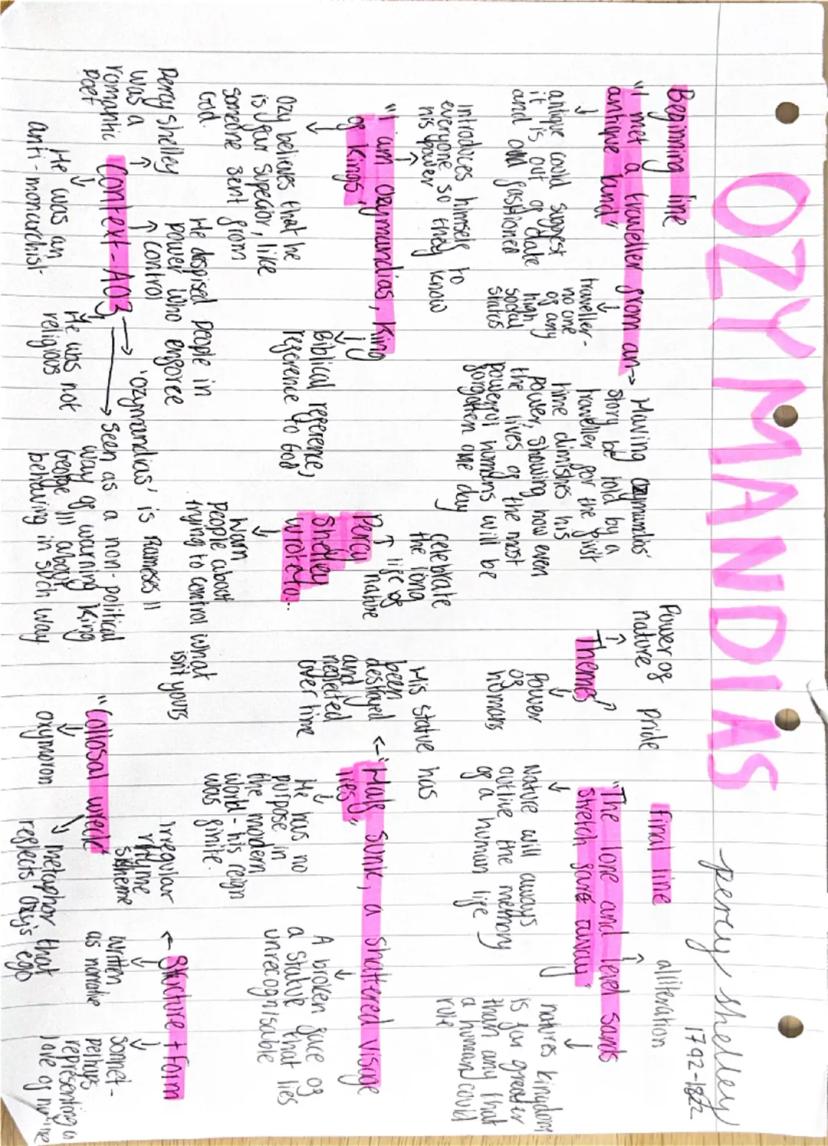 OZYMANDIAS
percy shelley
1792-1822
Beginning line
"I met a traveller from an
antique land"
antique could suggest
it is out of date
and old fashioned
traveller-
no one
of any
high
social
status
Having Ozymandis'
story be told by a
traveller for the first
time dimishes his
power, showing how even
the lives of the most
powerful humans will be
forgotten one day
Introduces himself to
everyone so they know
his power
"I am Ozymandias, King
of Kings,
Ozy believes that he
is your superior, like
someone sent from
God.
Biblical reference,
reference to God
Percy Shelley
was a
romantic
poet
He dispised people in
power who enforce
control
Context - AO3
He was an
anti-monarchist
He was not
religious
'Ozymandias' is Rameses II
Seen as a non-political
way of warning King
George III about
behaving in such way
celebrate
the long
life of
native
Percy
Shelley
wrote to...
warn
people about
trying to control what
isn't yours
Power of
nature
Pride
Themes
Power
of
humans
final line
alliteration
"The lone and level sands
stretch far away"
Nature will always
outlive the memory
of a human life
natures kingdom
is far greater
than any that
a human could
rule
His statue has
been
destroyed
and
neglected
over time
"Half sunk, a shattered visage
lies,
He has no
purpose in
the modern
world - his reign
was finite.
A broken face of
a statue that lies
unrecognisable
"Collosal wreck"
oxymoron
metaphor that
reflects Ozy's ego
Structure + form
irregular
rhyme
scheme
written
as narrative
Sonnet-
perhaps
representing a
love of nature